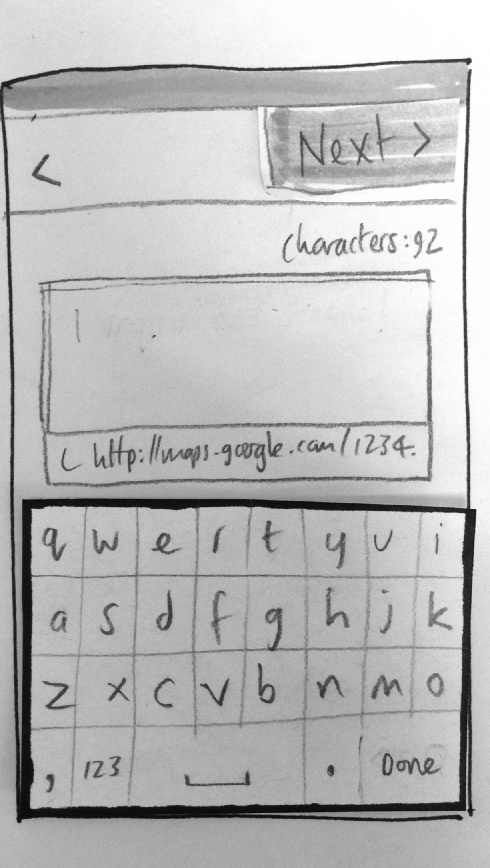 < Next >
characters:92
L http://maps.google.com/1234.
q w e r t y u i
a s d f g h j k
z x c v b n m o
, 123 . Done